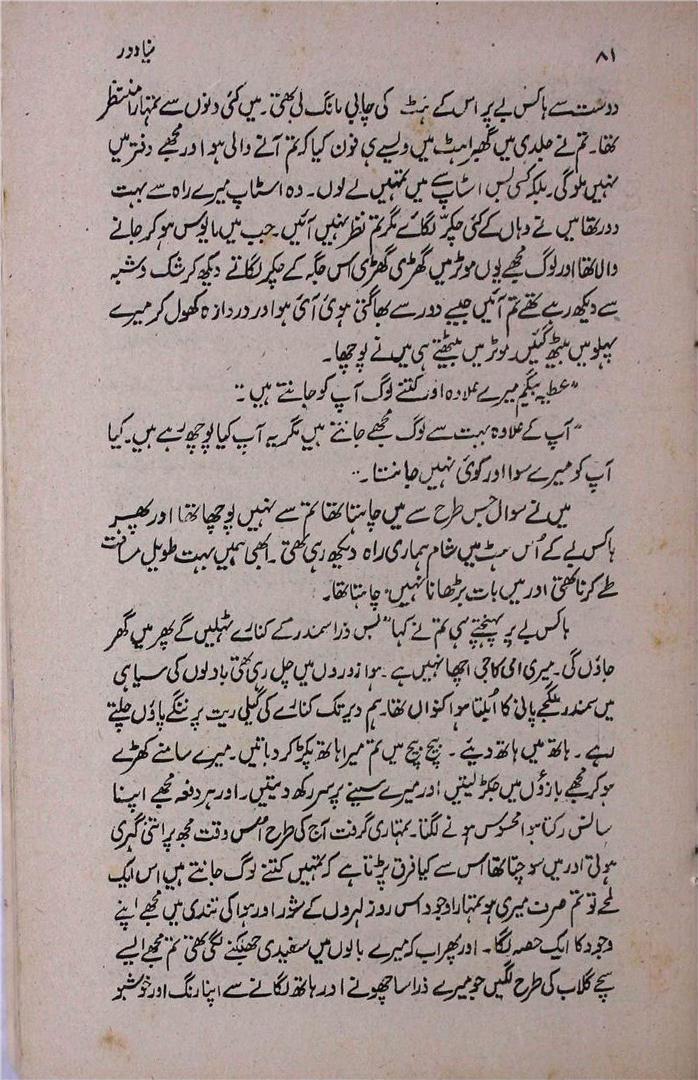 ۸۱
نیا دور
دوست سے ہاکس بے پر اس کے ہٹ کی چابی مانگ لی تھی۔ میں کئی دنوں سے تمہارا منتظر
تھا۔ تم نے جلدی میں گھبراہٹ میں ویسے ہی فون کیا کہ تم آنے والی ہو اور مجھے دفتر میں
نہیں ملو گی۔ بلکہ کسی بس اسٹاپ سے میں تمہیں لے لوں۔ وہ اسٹاپ میرے راہ سے بہت
دور تھا میں نے وہاں کے کئی چکر لگائے مگر تم نظر نہیں آئیں۔ جب میں مایوس ہو کر جانے
والا تھا اور لوگ مجھے یوں موٹر میں گھڑی گھڑی اس جگہ کے چکر لگاتے دیکھ کر شک و شبہ
سے دیکھ رہے تھے تم آئیں جیسے دور سے بھاگتی ہوئی آئی ہو اور دروازہ کھول کر میرے
پہلو میں بیٹھ گئیں۔ موٹر میں بیٹھتے ہی میں نے پوچھا۔
”عطیہ بیگم میرے علاوہ اور کتنے لوگ آپ کو جانتے ہیں“۔
”آپ کے علاوہ بہت سے لوگ مجھے جانتے ہیں مگر یہ آپ کیا پوچھ رہے ہیں۔ کیا
آپ کو میرے سوا اور کوئی نہیں جانتا۔“
میں نے سوال جس طرح سے میں چاہتا تھا تم سے نہیں پوچھا تھا اور پھر
ہاکس بے کے اُس ہٹ میں شام ہماری راہ دیکھ رہی تھی۔ ابھی ہمیں بہت طویل مسافت
طے کرنا تھی اور میں بات بڑھانا نہیں چاہتا تھا۔
ہاکس بے پر پہنچتے ہی تم نے کہا ”بس ذرا سمندر کے کنارے ٹہلیں گے پھر میں گھر
جاؤں گی۔ میری امی کا جی اچھا نہیں ہے۔ ہوا زوروں میں چل رہی تھی بادلوں کی سیاہی
میں سمندر ملگجے پانی کا اُبلتا ہوا کنواں تھا۔ ہم دیر تک کنارے کی گیلی ریت پر ننگے پاؤں چلتے
رہے۔ ہاتھ میں ہاتھ دیئے۔ بیچ بیچ میں تم میرا ہاتھ پکڑ کر دباتیں۔ میرے سامنے کھڑے
ہو کر مجھے بازوؤں میں جکڑ لیتیں اور میرے سینے پر سر رکھ دیتیں۔ اور ہر دفعہ مجھے اپنا
سانس رکتا ہوا محسوس ہونے لگتا۔ تمہاری گرفت آج کی طرح اُس وقت مجھ پر اتنی گہری
ہوتی اور میں سوچتا تھا اس سے کیا فرق پڑتا ہے کہ تمہیں کتنے لوگ جانتے ہیں اس ایک
لمحے تو تم صرف میری ہو تمہارا وجود اس روز لہروں کے شور اور ہوا کی تندی میں مجھے اپنے
وجود کا ایک حصہ لگا۔ اور پھر اب کہ میرے بالوں میں سفیدی جھلکنے لگی تھی تم مجھے ایسے
سچے گلاب کی طرح لگیں جو میرے ذرا سا چھونے اور ہاتھ لگانے سے اپنا رنگ اور خوشبو